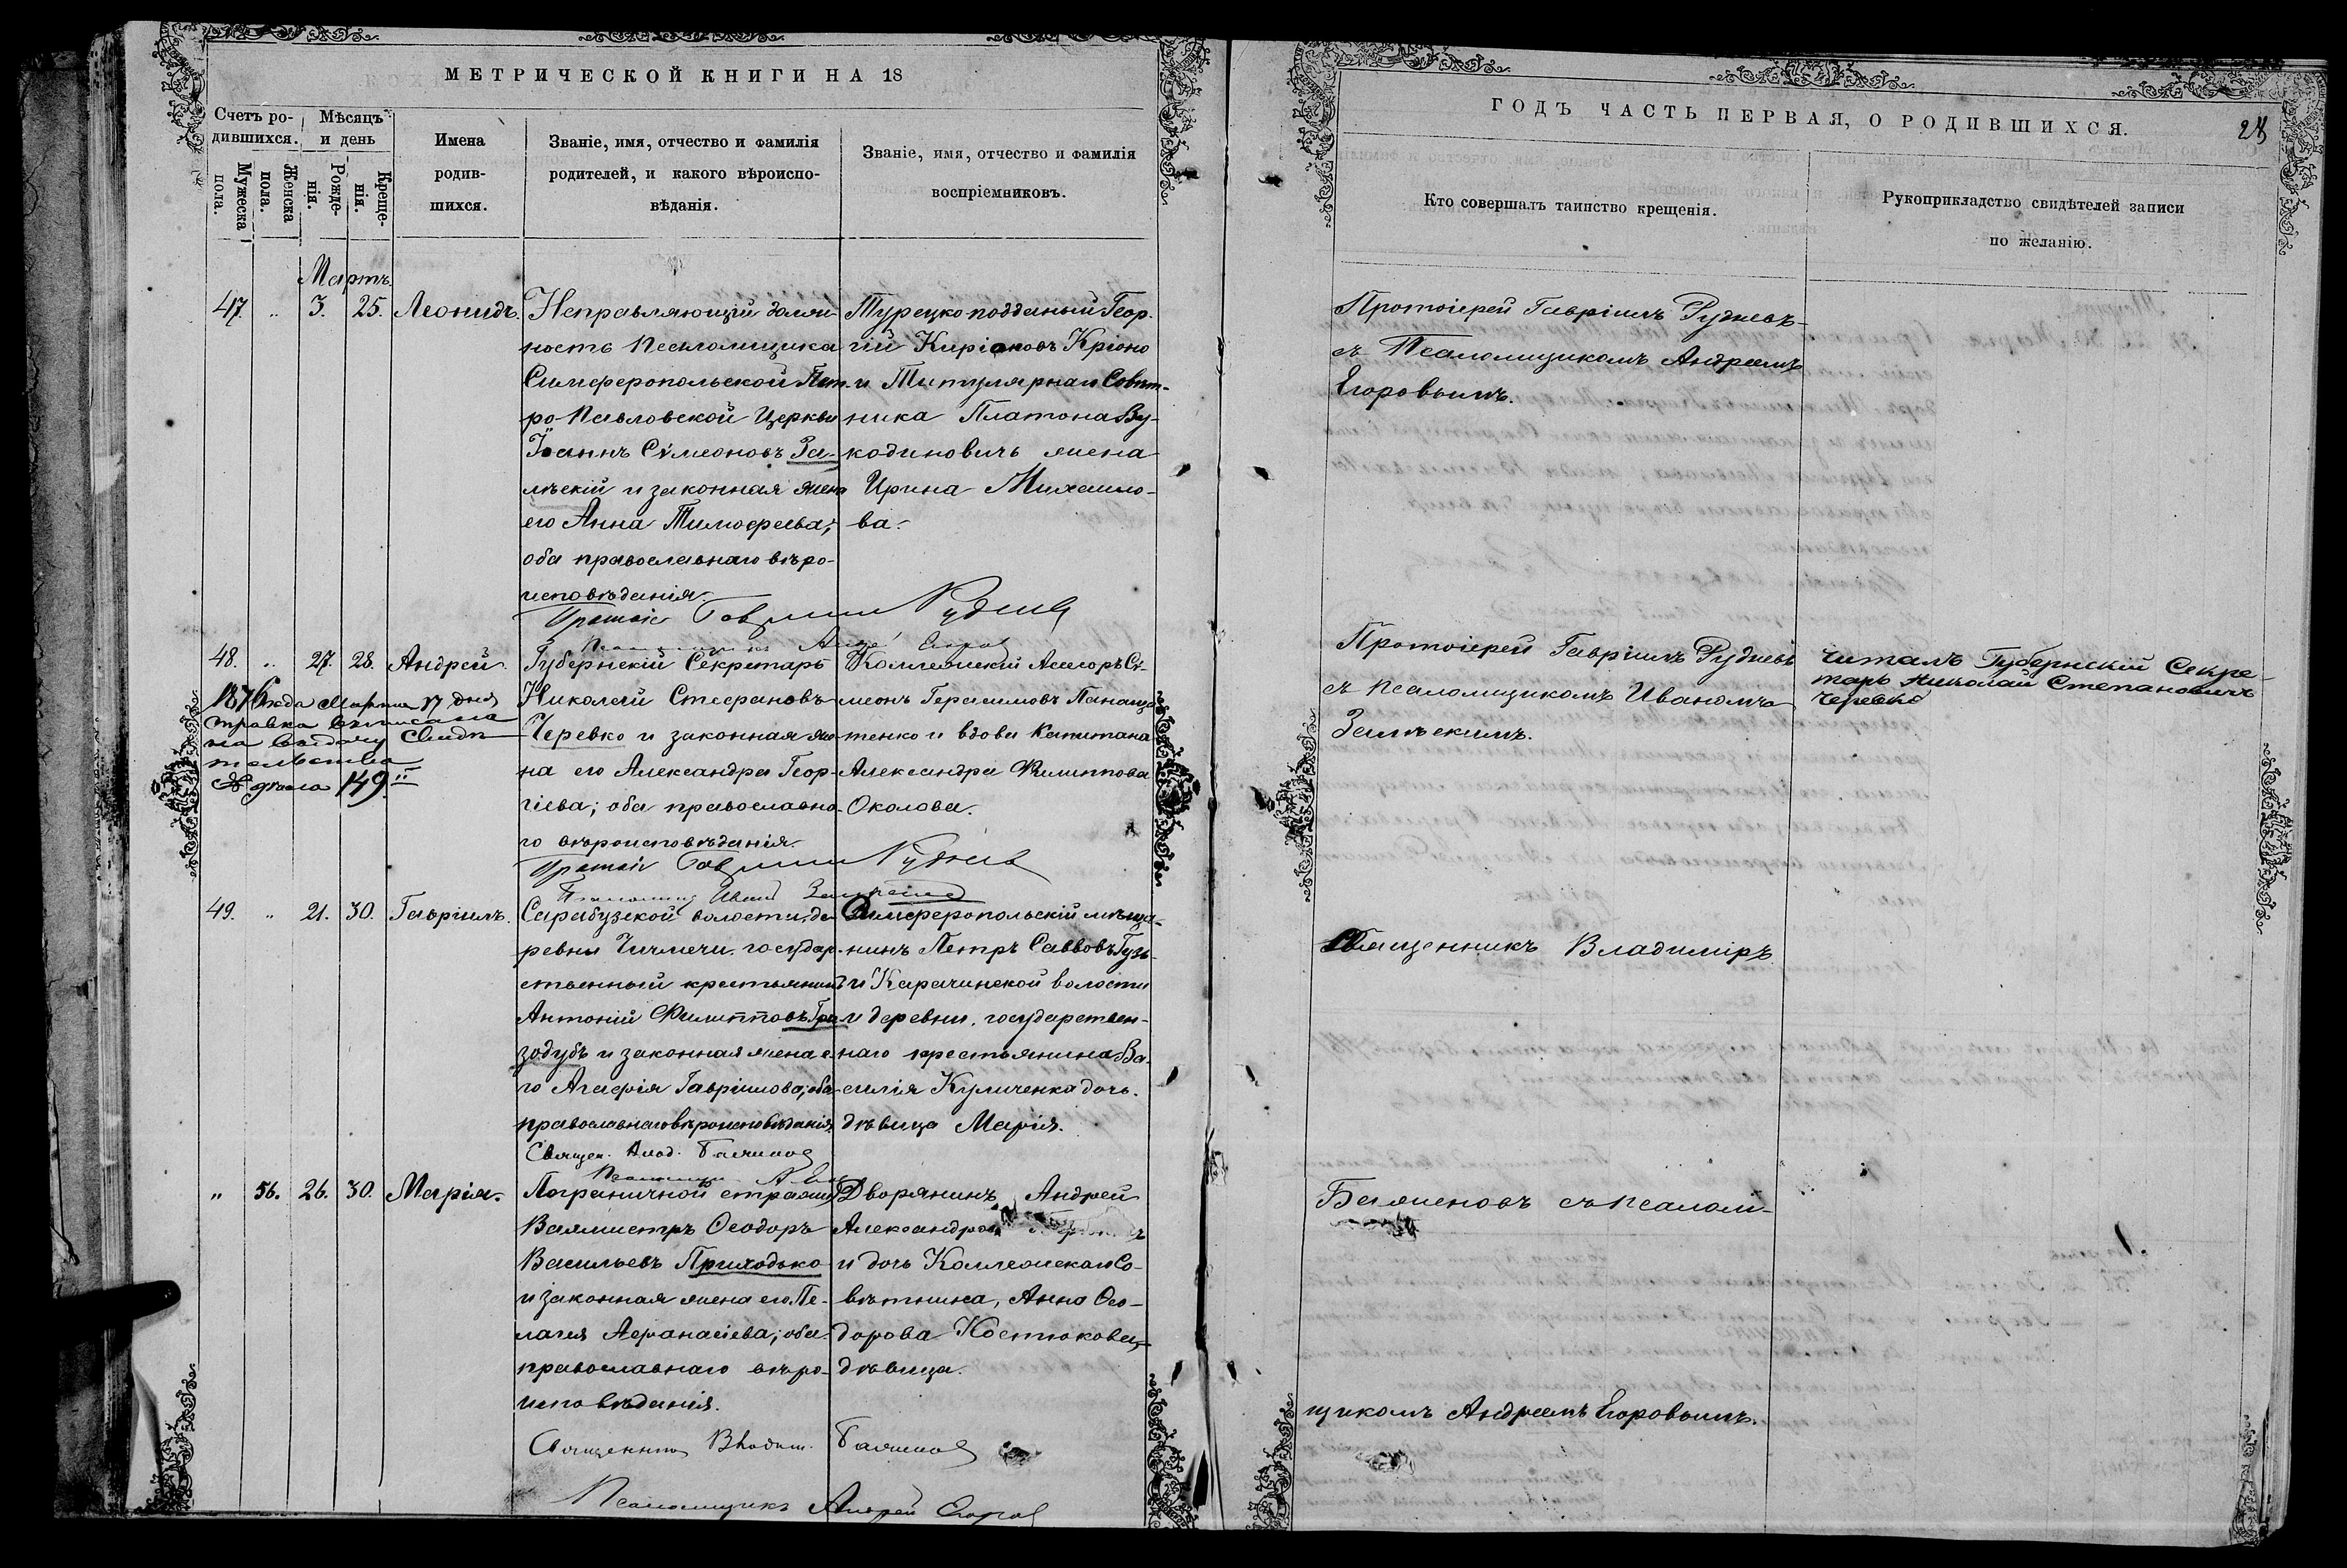 МЕТРИЧЕСКОЙ КНИГИ НА 18
Счетъ ро-
дившихся.
Мужеска
пола.
Женска
пола.
Мѣсяцъ
и день
Рожде-
нія.
Креще-
нія.
Имена
родив-
шихся.
Званіе, имя, отчество и фамилія
родителей, и какого вѣроиспо-
вѣданія.
Званіе, имя, отчество и фамилія
воспріемниковъ.
Мартъ
47. „ 3. 25. Леонидъ.
Исправляющій должн-
ность Псаломщика
Симферопольской Пет-
ро-Павловской Церкви
Іоаннъ Сѵмеоновъ За-
лѣскій и законная жена
его Анна Тимофеева;
оба православнаго вѣро-
исповѣданія.
Турецко подданый Геор-
гій Киріаковъ Кріоно
и Титулярнаго Совѣт-
ника Платона Ву-
кодиновичъ жена
Ирина Михаило-
ва.
Протоіе Гавриилъ Рудневъ
48. „ 27. 28. Андрей.
1876 года Марта 17 дня
справка выписана
на выдачу Свидѣ-
тельства
№ дѣла 149
Губернскій Секретарь
Николай Стефановъ
Черевко и законная же-
на его Александра Геор-
гіева; оба православна-
го вѣроисповѣданія.
Коллежскій Асесоръ Сѵ-
меонъ Герасимовъ Панащ-
тенко и вдова Капитана
Александра Филиппова
Околова.
Протоіе Гавриилъ Рудневъ
Псаломщ Иванъ Залѣскій
49. „ 21. 30. Гавріилъ.
Сарабузской волости, де-
ревни Чичмечи. государ-
ственный крестьянинъ
Антоній Филипповъ Гра-
зодубъ и законная жена е-
го Агафія Гавріилова; оба
православнаго вѣроисповѣданія.
Симферопольскій мѣща-
нинъ Петръ Саввовъ Гузь
и Карачинской волости
и деревни. государствен-
наго крестьянина Ва-
силія Куличенка дочь.
дѣвица Марія.
Священ. Влад. Баженов
„ 56. 26. 30. Марія.
Пограничной стражи
Вахмистръ Ѳеодоръ
Васильевъ Приходько
и законная жена его Пе-
лагея Афанасіева; оба
православнаго вѣро-
исповѣданія.
Дворянинъ Андрей
Александров
и дочь Коллежскаго Со-
вѣтника, Анна Ѳео-
дорова Костюкова,
дѣвица.
Священникъ Владим. Баженов
Псаломщикъ Андрей Егоров
ГОДЪ ЧАСТЬ ПЕРВАЯ, О РОДИВШИХСЯ.
Кто совершалъ таинство крещенія.
Рукоприкладство свидѣтелей записи
по желанію.
Протоіерей Гавріилъ Рудневъ
съ Псаломщикомъ Андреемъ
Егоровымъ.
Протоіерей Гавріилъ Рудневъ
съ псаломщикомъ Иваномъ
Залѣскимъ.
Читалъ Губернскій Секре-
тарь Николай Степановичъ
Черевко
Священникъ Владиміръ
Баженовъ съ псалом-
щикомъ Андреемъ Егоровымъ.